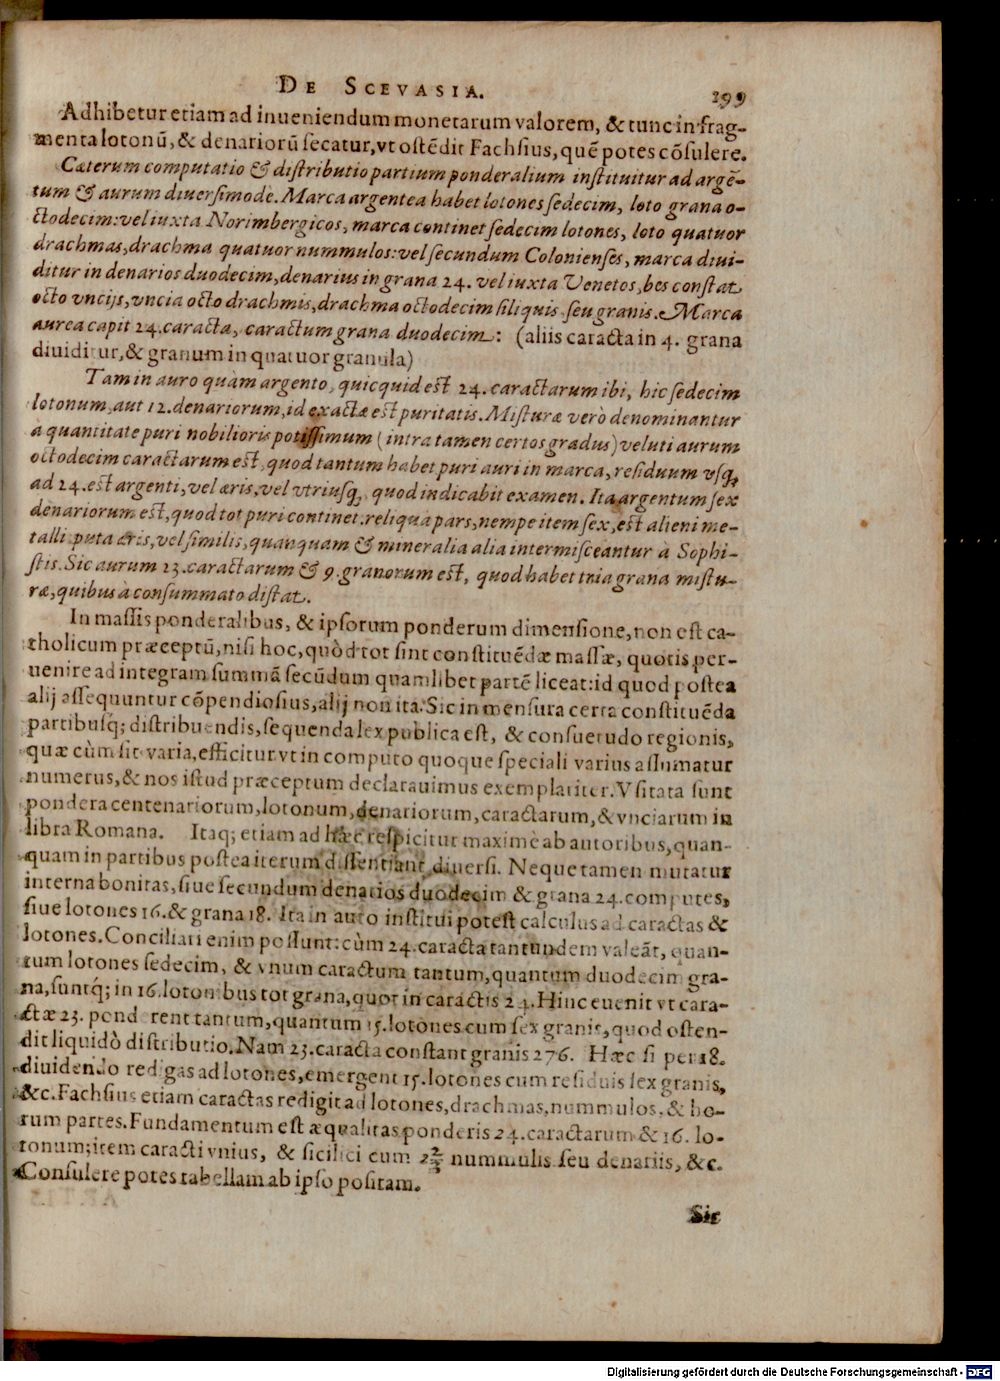 DE SCEVASIA. 299
Adhibetur etiam ad inueniendum monetarum valorem, & tunc in frag-
menta lotonũ, & denariorũ ſecatur, vt oſtẽdit Fachſius, quẽ potes cõſulere.
Cæterum computatio & diſtributio partium ponderalium inſtituitur ad argē-
tum & aurum diuerſimodè. Marca argentea habet lotones ſedecim, loto grana o-
ctodecim: vel iuxta Norimbergicos, marca continet ſedecim lotones, loto quatuor
drachmas, drachma quatuor nummulos: vel ſecundum Colonienſes, marca diui-
ditur in denarios duodecim, denarius in grana 24. vel iuxta Venetos, bes conſtat
octo vncijs, vncia octo drachmis, drachma octodecim ſiliquis ſeu granis. Marca
aurea capit 24. caracta, caractum grana duodecim: (aliis caracta in 4. grana
diuiditur, & granum in quatuor granula)
Tam in auro quàm argento, quicquid eſt 24. caractarum ibi, hic ſedecim
lotonum, aut 12. denariorum, id exactæ eſt puritatis. Miſturæ verò denominantur
à quantitate puri nobilioris potiſſimum (intra tamen certos gradus) veluti aurum
octodecim caractarum eſt, quod tantum habet puri auri in marca, reſiduum vſq;
ad 24. eſt argenti, vel æris, vel vtriuſq;, quod indicabit examen. Ita argentum ſex
denariorum eſt, quod tot puri continet. reliqua pars, nempe item ſex, eſt alieni me-
talli puta æris, vel ſimilis, quanquam & mineralia alia intermiſceantur à Sophi-
ſtis. Sic aurum 23. caractarum & 9. granorum eſt, quod habet tria grana miſtu-
ræ, quibus à conſummato diſtat.
In maſſis ponderalibus, & ipſorum ponderum dimenſione, non eſt ca-
tholicum præceptũ, niſi hoc, quòd tot ſint conſtituẽdæ maſſæ, quotis per-
uenire ad integram ſummã ſecũdum quamlibet partẽ liceat: id quod poſtea
alij aſſequuntur cõpendioſius, alij non ita. Sic in menſura certa conſtituẽda
partibuſq; diſtribuendis, ſequenda lex publica eſt, & conſuetudo regionis,
quæ cùm ſit varia, efficitur vt in computo quoque ſpeciali varius aſſumatur
numerus, & nos iſtud præceptum declarauimus exemplariter. Vſitata ſunt
pondera centenariorum, lotonum, denariorum, caractarum, & vnciarum in
libra Romana. Itaq; etiam ad hæc reſpicitur maximè ab autoribus, quan-
quam in partibus poſtea iterum diſſentiant diuerſi. Neque tamen mutatur
interna bonitas, ſiue ſecundum denarios duodecim & grana 24. computes,
ſiue lotones 16. & grana 18. Ita in auro inſtitui poteſt calculus ad caractas &
lotones. Conciliari enim poſſunt: cùm 24. caracta tantundem valeãt, quan-
tum lotones ſedecim, & vnum caractum tantum, quantum duodecim gra-
na, ſuntq; in 16. lotonibus tot grana, quot in caractis 24. Hinc euenit vt cara-
ctæ 23. ponderent tantum, quantum 15. lotones cum ſex granis, quod oſten-
dit liquidò diſtributio. Nam 23. caracta conſtant granis 276. Hæc ſi per 18.
diuidendo redigas ad lotones, emergent 15. lotones cum reſiduis ſex granis,
&c. Fachſius etiam caractas redigit ad lotones, drachmas, nummulos, & ho-
rum partes. Fundamentum eſt æqualitas ponderis 24. caractarum & 16. lo-
tonum; item caracti vnius, & ſicilici cum 2⅔ nummulis ſeu denariis, &c.
Conſulere potes tabellam ab ipſo poſitam.
Sic
Digitalisierung gefördert durch die Deutsche Forschungsgemeinschaft - DFG